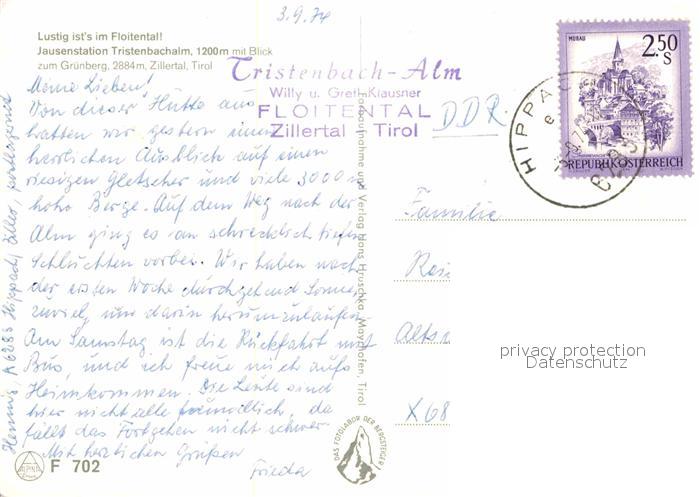 3.9.74
Lustig ist's im Floitental!
Jausenstation Tristenbachalm, 1200m mit Blick
zum Grünberg, 2884m, Zillertal, Tirol
Tristenbach-Alm
Willy u. Gretl Klausner
FLOITENTAL
Zillertal - Tirol
DDR
MURAU
2.50
S
REPUBLIK ÖSTERREICH
HIPPACH
Meine Lieben!
Von dieser Hütte aus
hatten wir gestern einen
herrlichen Ausblick auf einen
riesigen Gletscher und viele 3000 m
hohe Berge. Auf dem Weg nach der
Alm ging es an schrecklich tiefen
Schluchten vorbei. Wir haben nach
der ersten Woche durchgehend Sonne
zuviel, um darin herumzulaufen.
Am Samstag ist die Rückfahrt mit
Bus, und ich freue mich aufs
Heimkommen. Die Leute sind
hier nicht alle freundlich, da
fällt das Fortgehen nicht schwer.
Mit herzlichen Grüßen
Frieda
Henning, A 6283 Hippach, Ziller,
Farbaufnahme und Verlag Hans Hruschka, Mayrhofen, Tirol
Familie
Rei
Alts
X 68
privacy protection
Datenschutz
DAS FOTOLABOR DER BERGSTEIGER
ALPINA
F 702